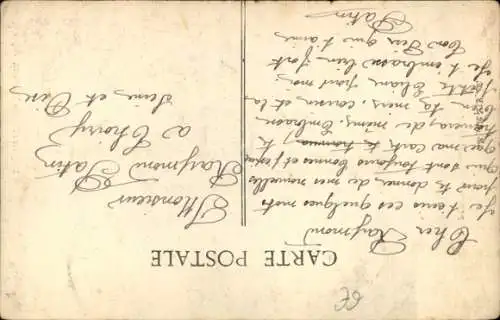 CARTE POSTALE
Cher Raymond
Je t'envs ces quelques mots
pour te donner de mes nouvelles
qui sont toujours bonnes et j'espère
que ma carte te
trouvera de même. Embrasse
bien ta mère, et la
petite pour moi
Je t'embrasse bien fort
ton qui t'aime
Patin
Monsieur
Raymond Patin
a Thoiry
Seine et Oise